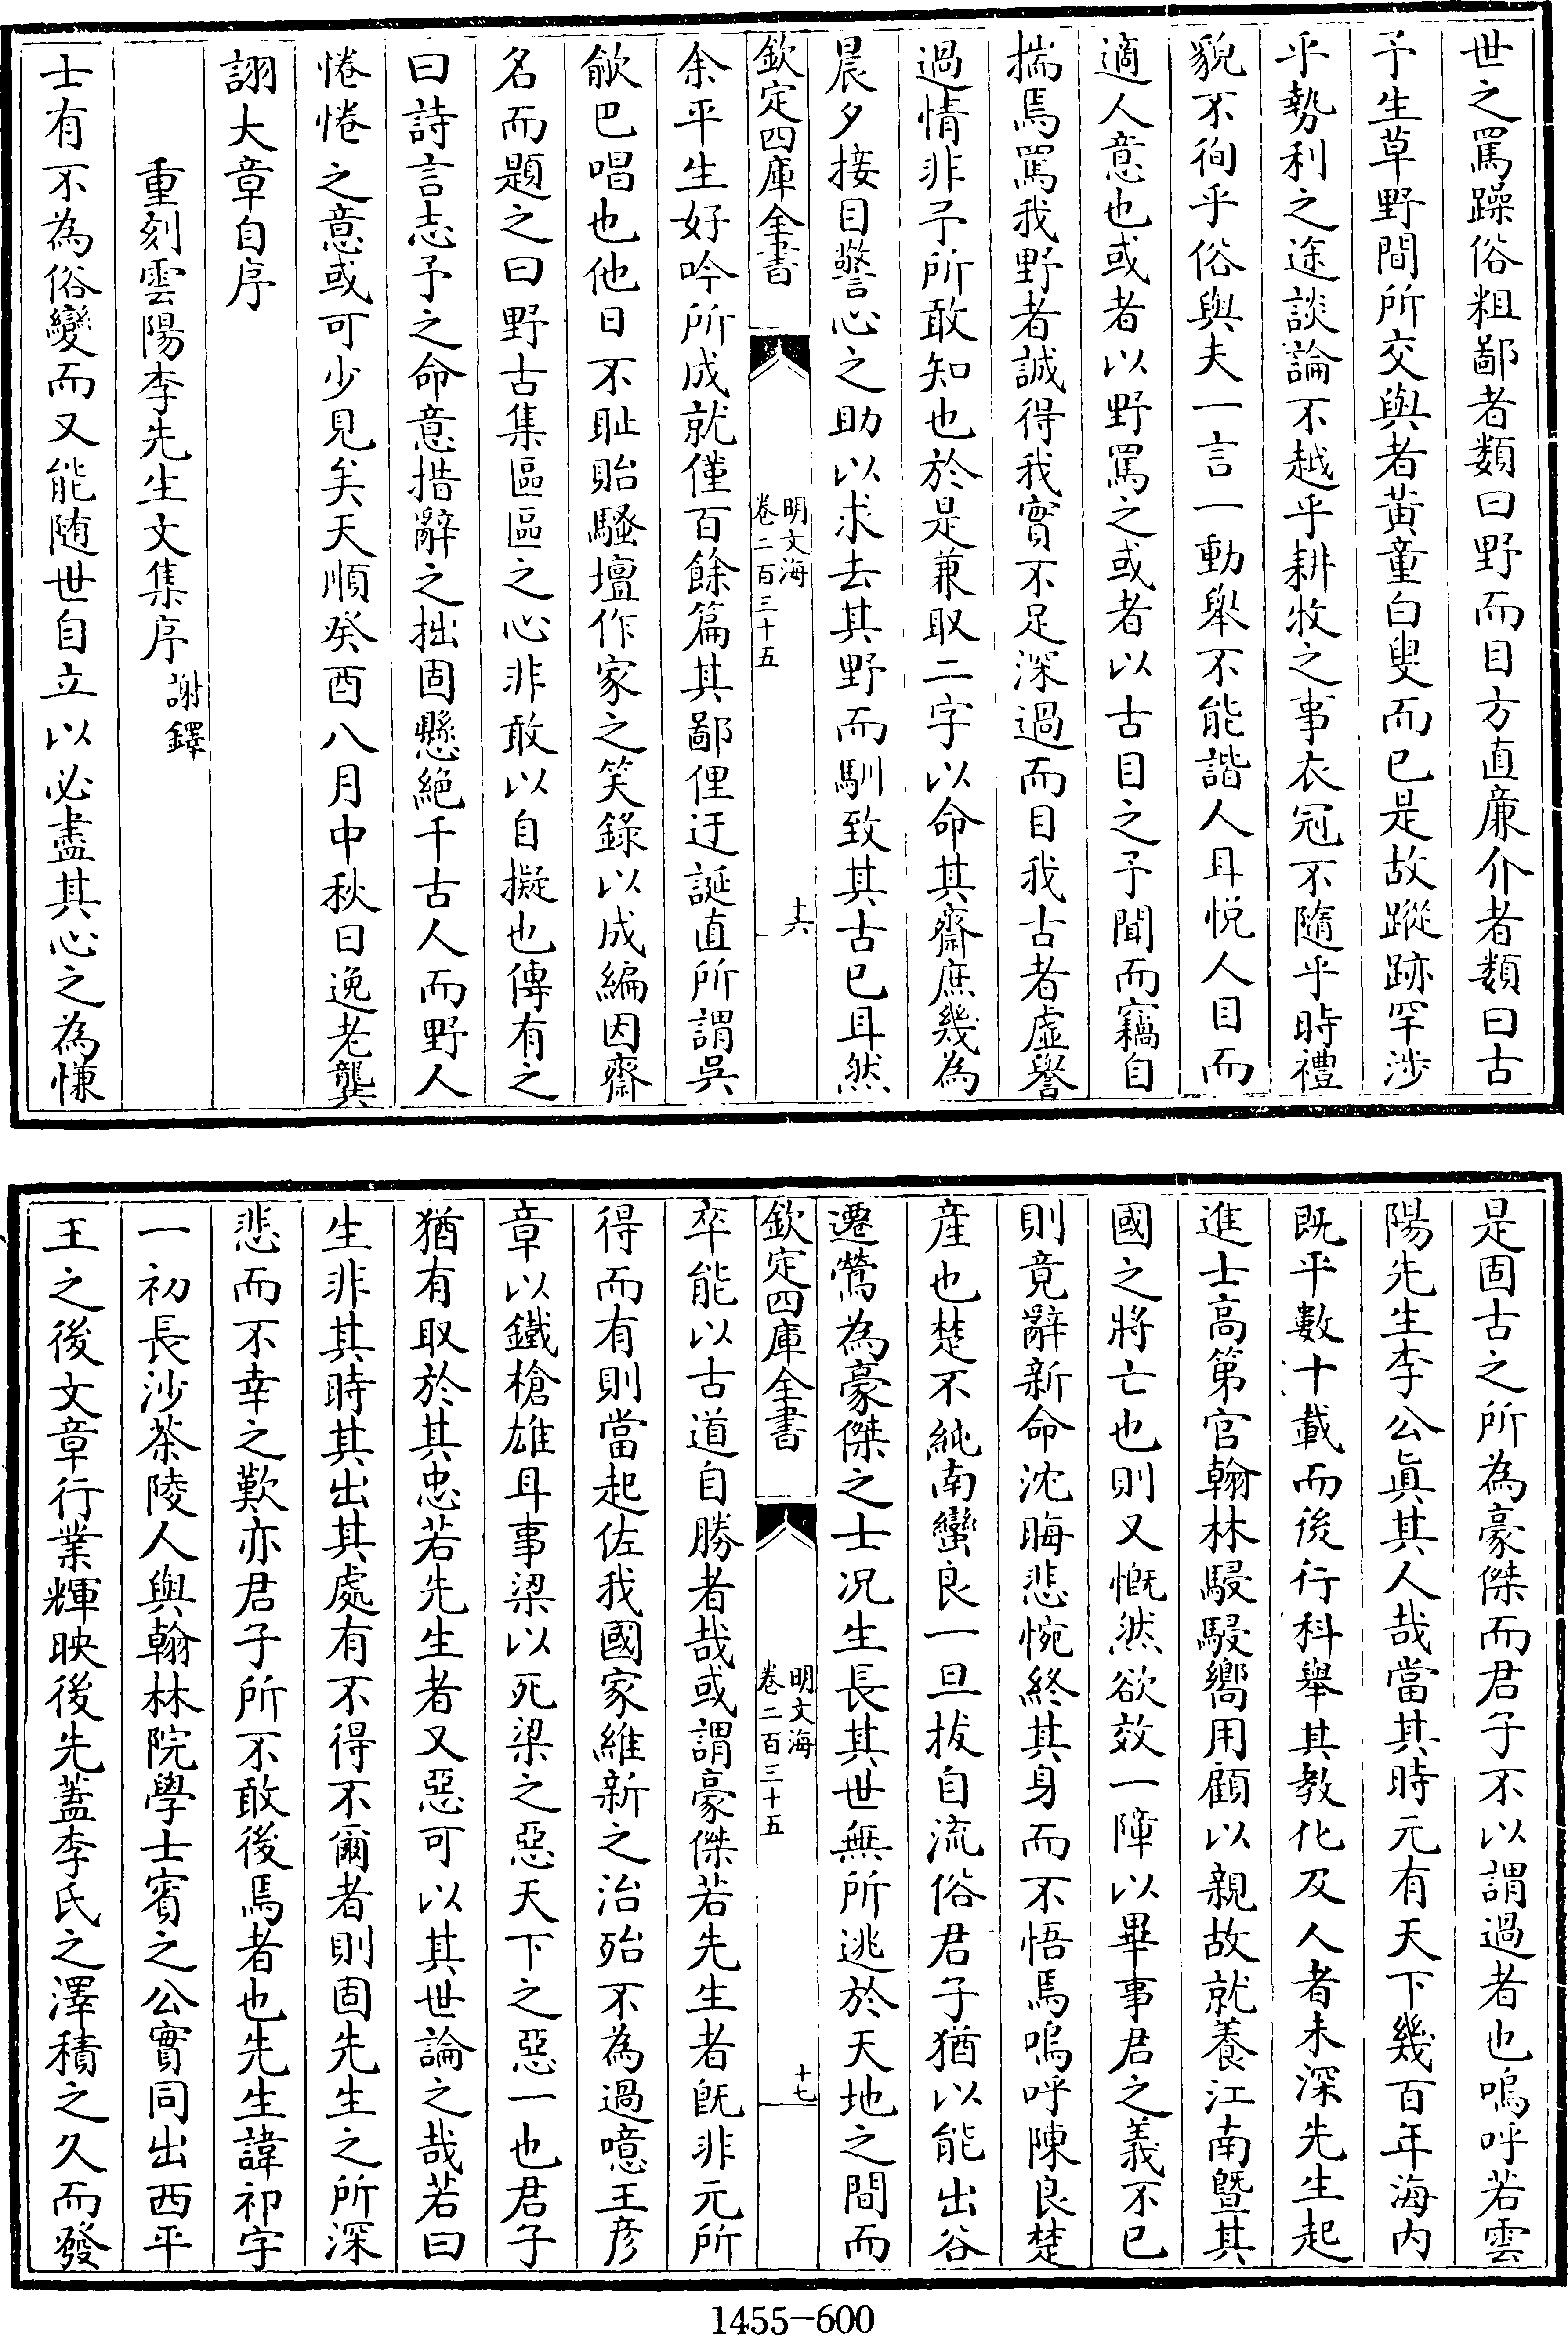 世之罵躁俗粗鄙者類曰野而目方直廉介者類曰古
予生草野間所交與者黃童白叟而已是故蹤跡罕涉
乎勢利之途談論不越乎耕牧之事衣冠不隨乎時禮
貌不徇乎俗與夫一言一動舉不能諧人耳悦人目而
適人意也或者以野罵之或者以古目之予聞而竊自
揣焉罵我野者誠得我實不足深過而目我古者虛譽
過情非予所敢知也於是兼取二字以命其齋庶幾為
晨夕接目警心之助以求去其野而馴致其古已耳然
欽定四庫全書
明文海
卷二百三十五
十六
余平生好吟所成就僅百餘篇其鄙俚迂誕直所謂吳
歈巴唱也他日不耻貽騷壇作家之笑錄以成編因齋
名而題之曰野古集區區之心非敢以自擬也傳有之
曰詩言志予之命意措辭之拙固懸絶千古人而野人
惓惓之意或可少見矣天順癸酉八月中秋日逸老龔
詡大章自序
重刻雲陽李先生文集序 謝鐸
士有不為俗變而又能随世自立以必盡其心之為慊
是固古之所為豪傑而君子不以謂過者也嗚呼若雲
陽先生李公真其人哉當其時元有天下幾百年海内
既平數十載而後行科舉其教化及人者未深先生起
進士高第官翰林駸駸嚮用顧以親故就養江南暨其
國之將亡也則又慨然欲效一障以畢事君之義不已
則竟辭新命沈晦悲惋終其身而不悟焉嗚呼陳良楚
産也楚不純南蠻良一旦拔自流俗君子猶以能出谷
遷鶯為豪傑之士况生長其世無所逃於天地之間而
欽定四庫全書
明文海
卷二百三十五
十七
卒能以古道自勝者哉或謂豪傑若先生者既非元所
得而有則當起佐我國家維新之治殆不為過噫王彦
章以鐵槍雄耳事梁以死梁之惡天下之惡一也君子
猶有取於其忠若先生者又惡可以其世論之哉若曰
生非其時其出其處有不得不爾者則固先生之所深
悲而不幸之歎亦君子所不敢後焉者也先生諱祁字
一初長沙茶陵人與翰林院學士賓之公實同出西平
王之後文章行業輝映後先蓋李氏之澤積之久而發
1455-600